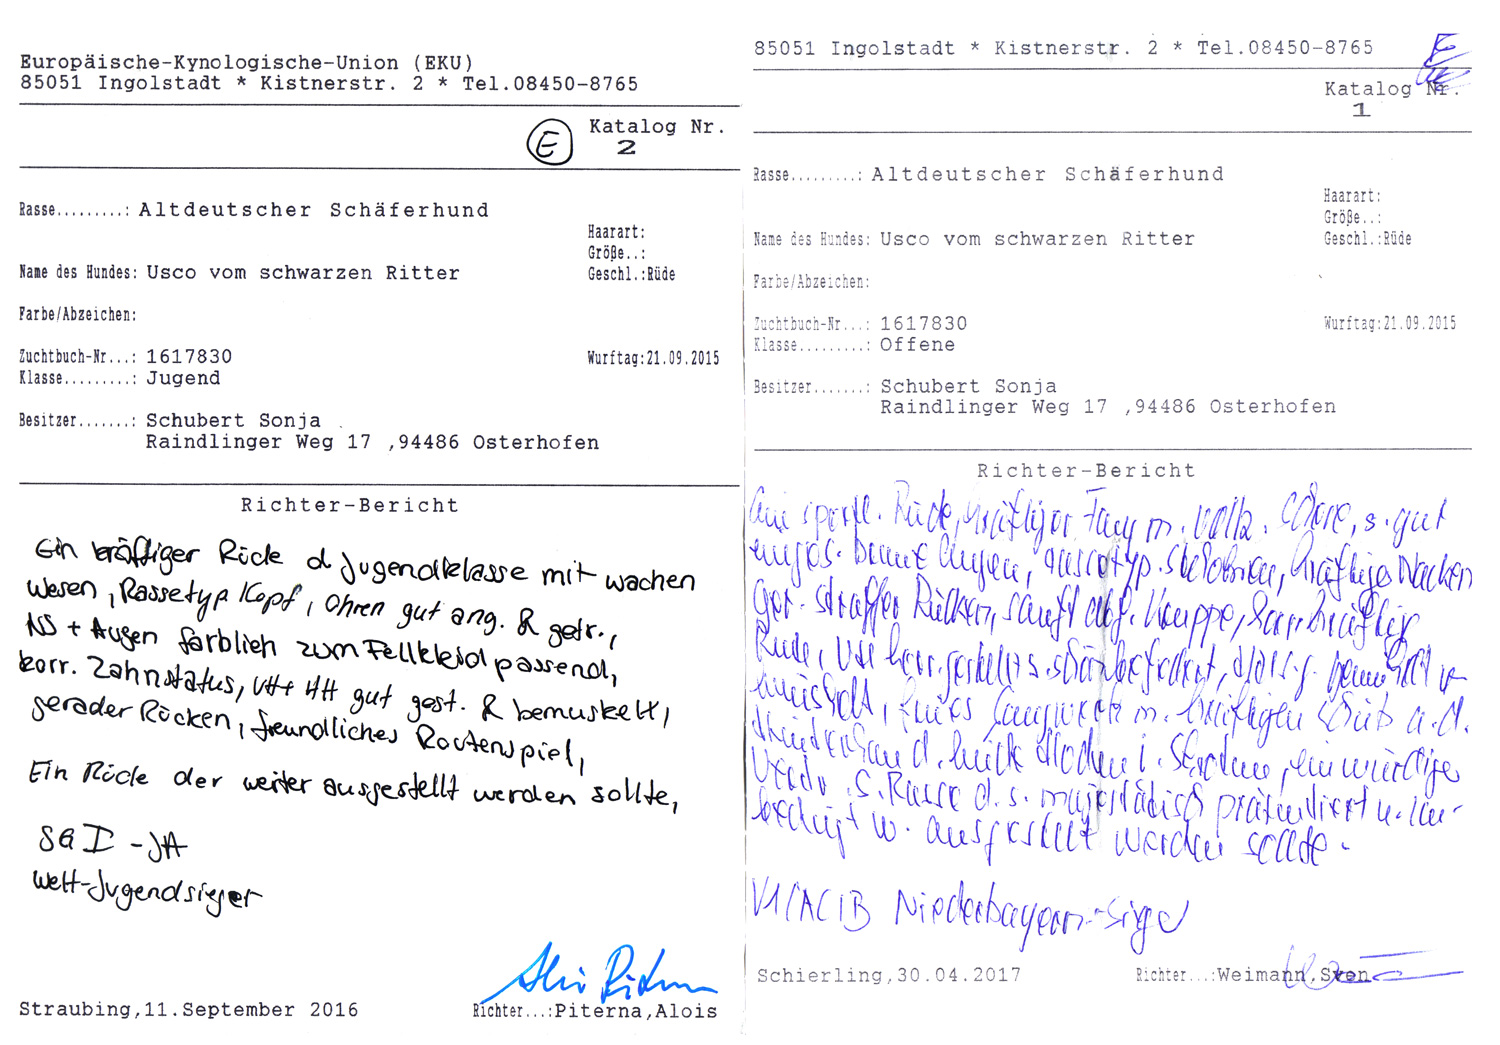 Europäische-Kynologische-Union (EKU)
85051 Ingolstadt * Kistnerstr. 2 * Tel.08450-8765
E
Katalog Nr.
2
Rasse.........: Altdeutscher Schäferhund
Haarart:
Größe..:
Name des Hundes: Usco vom schwarzen Ritter
Geschl.:Rüde
Farbe/Abzeichen:
Zuchtbuch-Nr...: 1617830
Wurftag:21.09.2015
Klasse.........: Jugend
Besitzer.......: Schubert Sonja
Raindlinger Weg 17 ,94486 Osterhofen
Richter-Bericht
Ein kräftiger Rüde d Jugendklasse mit wachen
Wesen, Rassetyp Kopf, Ohren gut ang. & getr.,
NS + Augen farblich zum Fellkleid passend,
korr. Zahnstatus, VH+ HH gut gest. & bemuskelt,
gerader Rücken, freundliches Rutenspiel,
Ein Rüde der weiter ausgestellt werden sollte,
SG I - JA
Welt-Jugendsieger
Straubing,11.September 2016
Richter...:Piterna,Alois
85051 Ingolstadt * Kistnerstr. 2 * Tel.08450-8765
Katalog Nr.
1
Rasse.........: Altdeutscher Schäferhund
Haarart:
Größe..:
Name des Hundes: Usco vom schwarzen Ritter
Geschl.:Rüde
Farbe/Abzeichen:
Zuchtbuch-Nr...: 1617830
Wurftag:21.09.2015
Klasse.........: Offene
Besitzer.......: Schubert Sonja
Raindlinger Weg 17 ,94486 Osterhofen
Richter-Bericht
Rüde, kräftiger Fang m. vollz. Schere, s. gut
Augen, kräftiges Nacken
ger. straffer Rücken, sanft abf. Kruppe, kräftig
Rüde,
m. kräftigen Schub a. d.
Hinterhand, i. Stehen, ein würdiger
s. Rasse d. s. majestätisch präsentiert u. un-
bedingt w. ausgestellt werden sollte.
V1/ACIB Niederbayern-Sieger
Schierling,30.04.2017
Richter...:Weimann,Sven